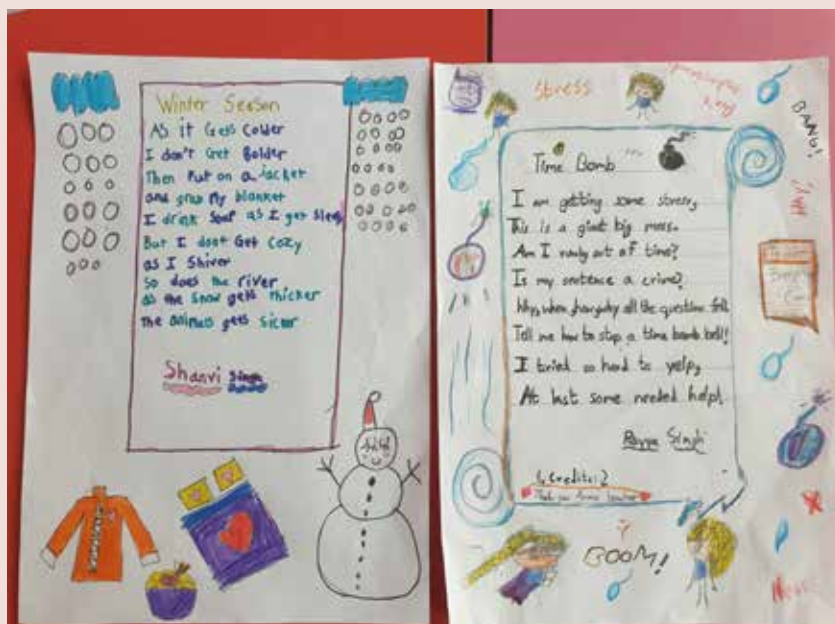 Winter Season
As it Gets Colder
I don't Get Bolder
Then Put on a Jacket
and grab My blanket
I drink Soup as I get Sleep
But I dont Get Cozy
as I Shiver
So does the river
as the Snow gets thicker
The animals gets Sicker
Shanvi Singh
Stress
BANG!
Time Bomb
I am getting some stress,
This is a giant big mess.
Am I runing out of time?
Is my sentence a crime?
Why, when, how, why all the question fell
Tell me how to stop a time bomb bell!
I tried so hard to yelp,
At last some needed help!
Singh
Credits:
Thank you teacher
BOOM!